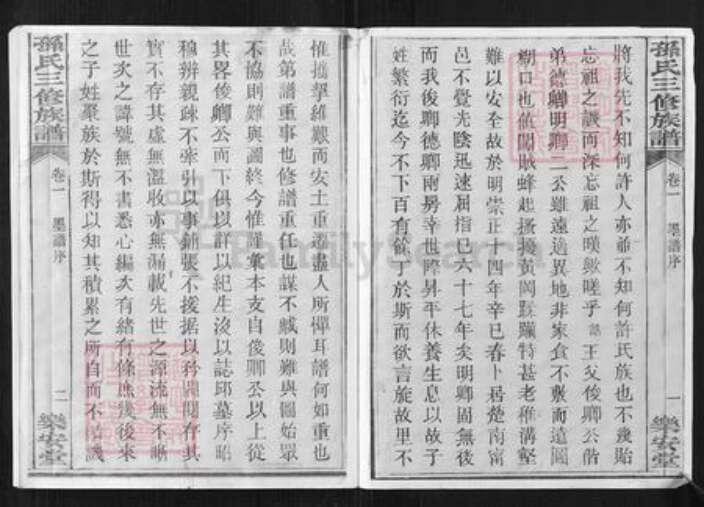 孫氏三修族譜
卷一
墨譜序
一
樂安堂
將我先不知何許人亦並不知何許氏族也不幾貽
忘祖之譏而深忘祖之嘆歟嗟乎 王父俊卿公偕
弟德卿明卿二公雖遠適異地非家食不敷而遠圖
糊口也 闖賊蜂起搔擾黃岡蹂躪特甚老稚溝壑
難以安全故於明崇正十四年辛巳春卜居楚南甯
邑不覺光陰迅速屈指巳六十七年矣明卿固無後
而我後卿德卿兩房幸世際昇平休養生息以故子
姓繁衍迄今不下百有餘丁於斯而欲言旋故里不
惟攜挈維艱而安土重遷盡人所憚耳譜何如重也
故第譜重事也修譜重任也謀不臧則難與圖始眾
不協則難與圖終今惟謹彙本支自俊卿公以上從
其畧俊卿公而下俱以詳以紀生沒以誌邱墓序昭
穆辨親疎不牽引以事鋪張不援据以矜閥閱存其
實不存其虛無濫收亦無漏載先世之源流無不晰
世次之諱號無不書悉心編次有緒有條庶幾後來
之子姓聚族於斯得以知其積累之所自而不 識
孫氏三修族譜
卷一
墨譜序
二
樂安堂
FamilySearch